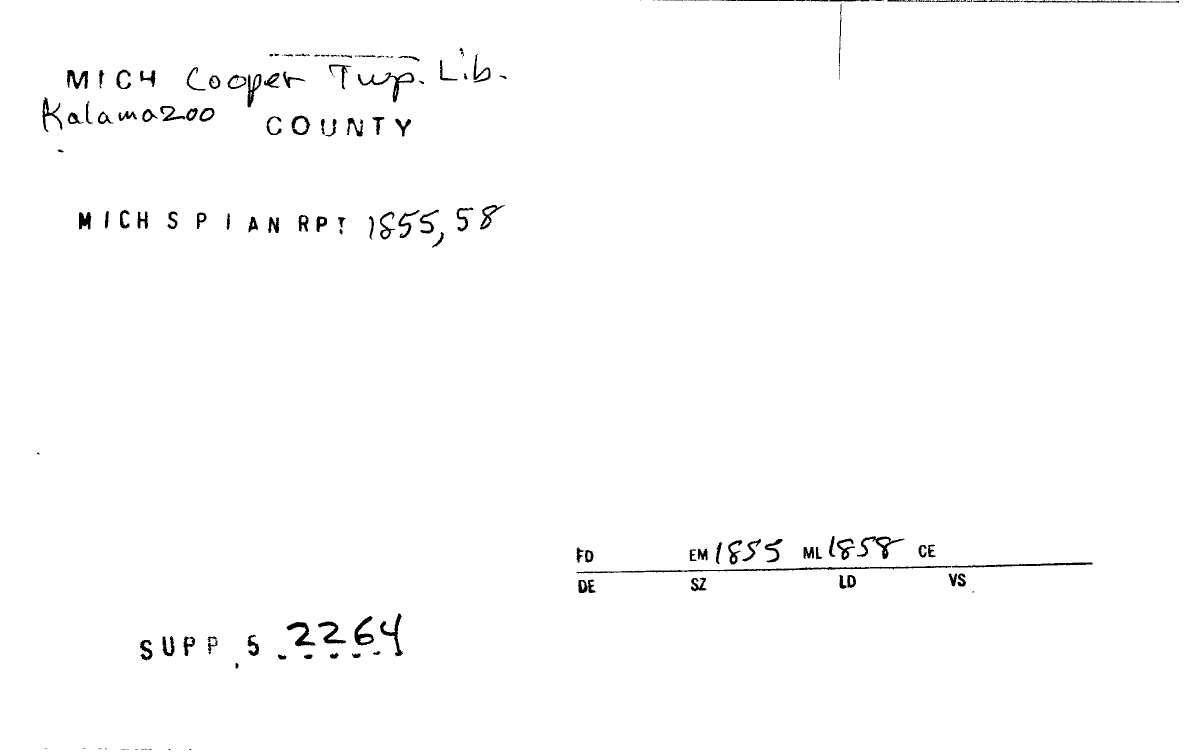 MICH Cooper Twp. Lib.
Kalamazoo COUNTY
MICH S P I AN RPT 1855, 58
FD EM 1855 ML 1858 CE
DE SZ LD VS
SUPP. 5 2264